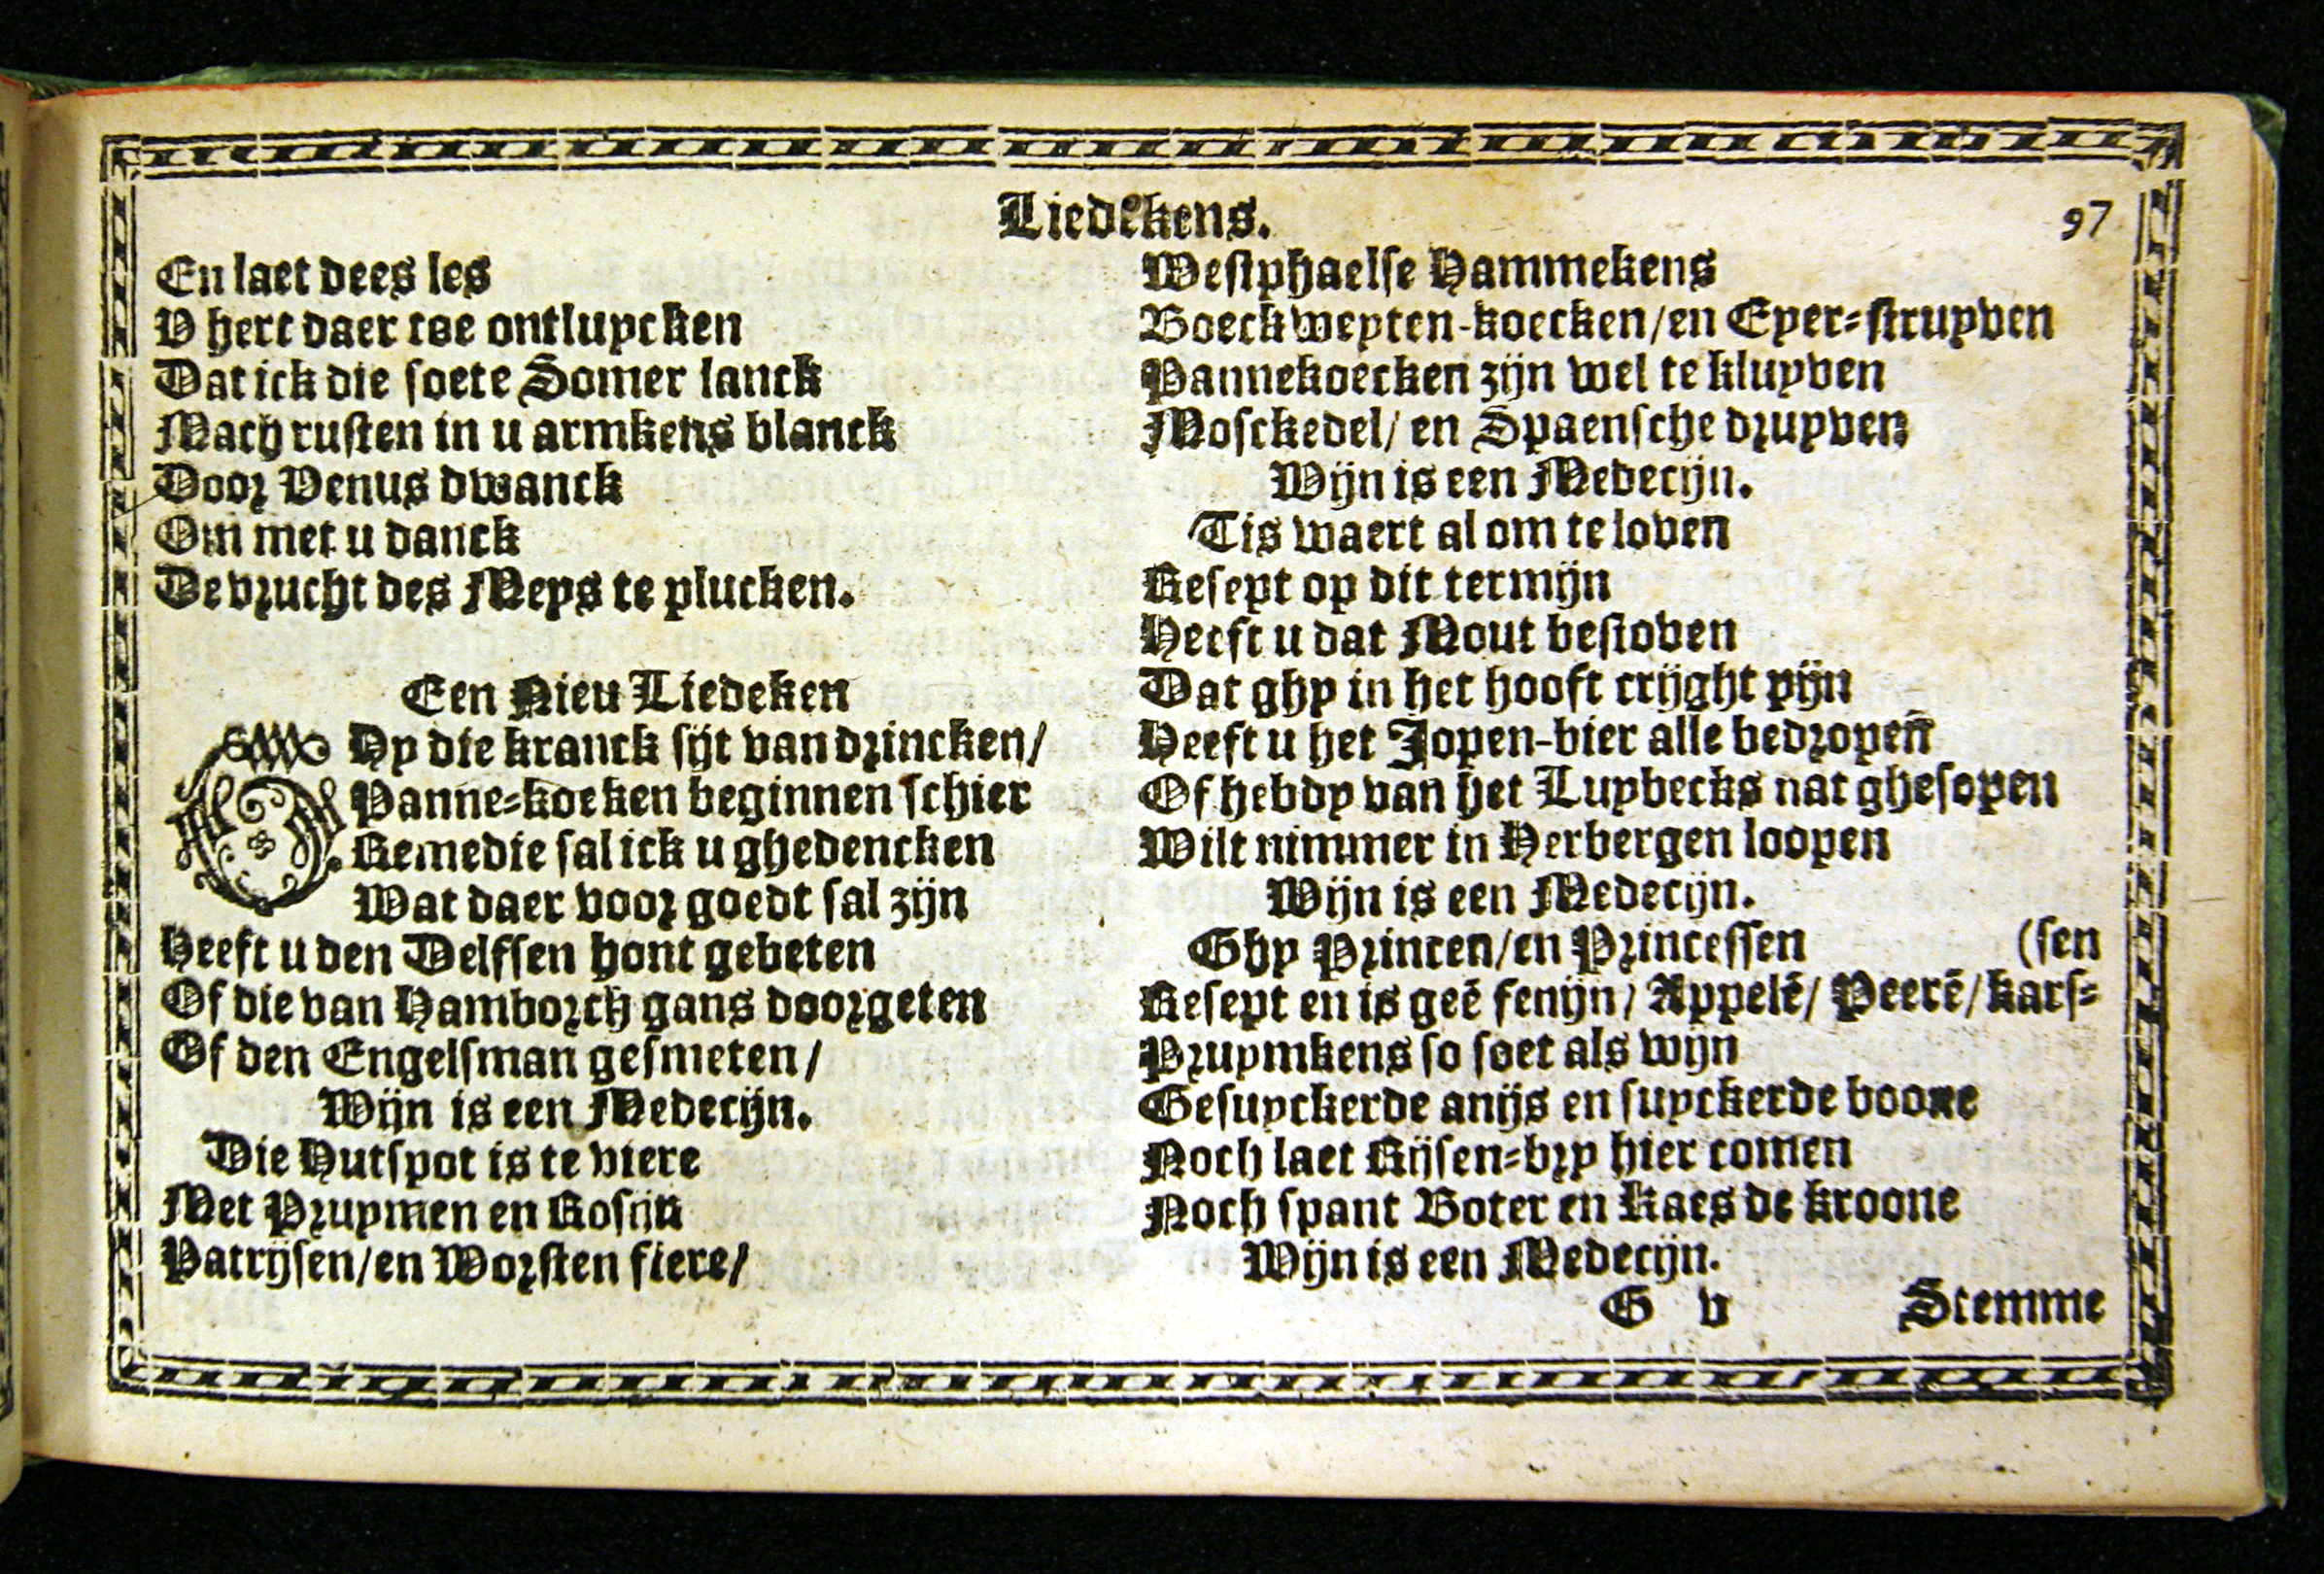 Liedekens.
97
En laet dees les
V hert daer toe ontluycken
Dat ick die soete Somer lanck
Mach rusten in u armkens blanck
Door Venus dwanck
Om met u danck
De vrucht des Meys te plucken.
Een Nieu Liedeken
GHy die kranck sijt van drincken/
Panne-koeken beginnen schier
Remedie sal ick u ghedencken
Wat daer voor goedt sal zijn
Heeft u den Delfsen hont gebeten
Of die van Hamborch gans doorgeten
Of den Engelsman gesmeten/
Wijn is een Medecijn.
Die Hutspot is te viere
Met Pruymen en Rosijn
Patrijsen/en Worsten fiere/
Westphaelse Hammekens
Boeckweyten-koecken/en Eyer-struyven
Pannekoecken zijn wel te kluyven
Mosckedel/ en Spaensche druyven
Wijn is een Medecijn.
Tis waert al om te loven
Resept op dit termijn
Heeft u dat Mout bestoven
Dat ghy in het hooft crijght pijn
Heeft u het Jopen-bier alle bedropen
Of hebdy van het Luybecks nat ghesopen
Wilt nimmer in Herbergen loopen
Wijn is een Medecijn.
Ghy Princen/en Princessen (sen
Resept en is geē fenijn/ Appelē/ Peerē/ kars-
Pruymkens so soet als wijn
Gesuyckerde anijs en suyckerde boone
Noch laet Rijsen-bry hier comen
Noch spant Boter en Kaes de kroone
Wijn is een Medecijn.
G v Stemme